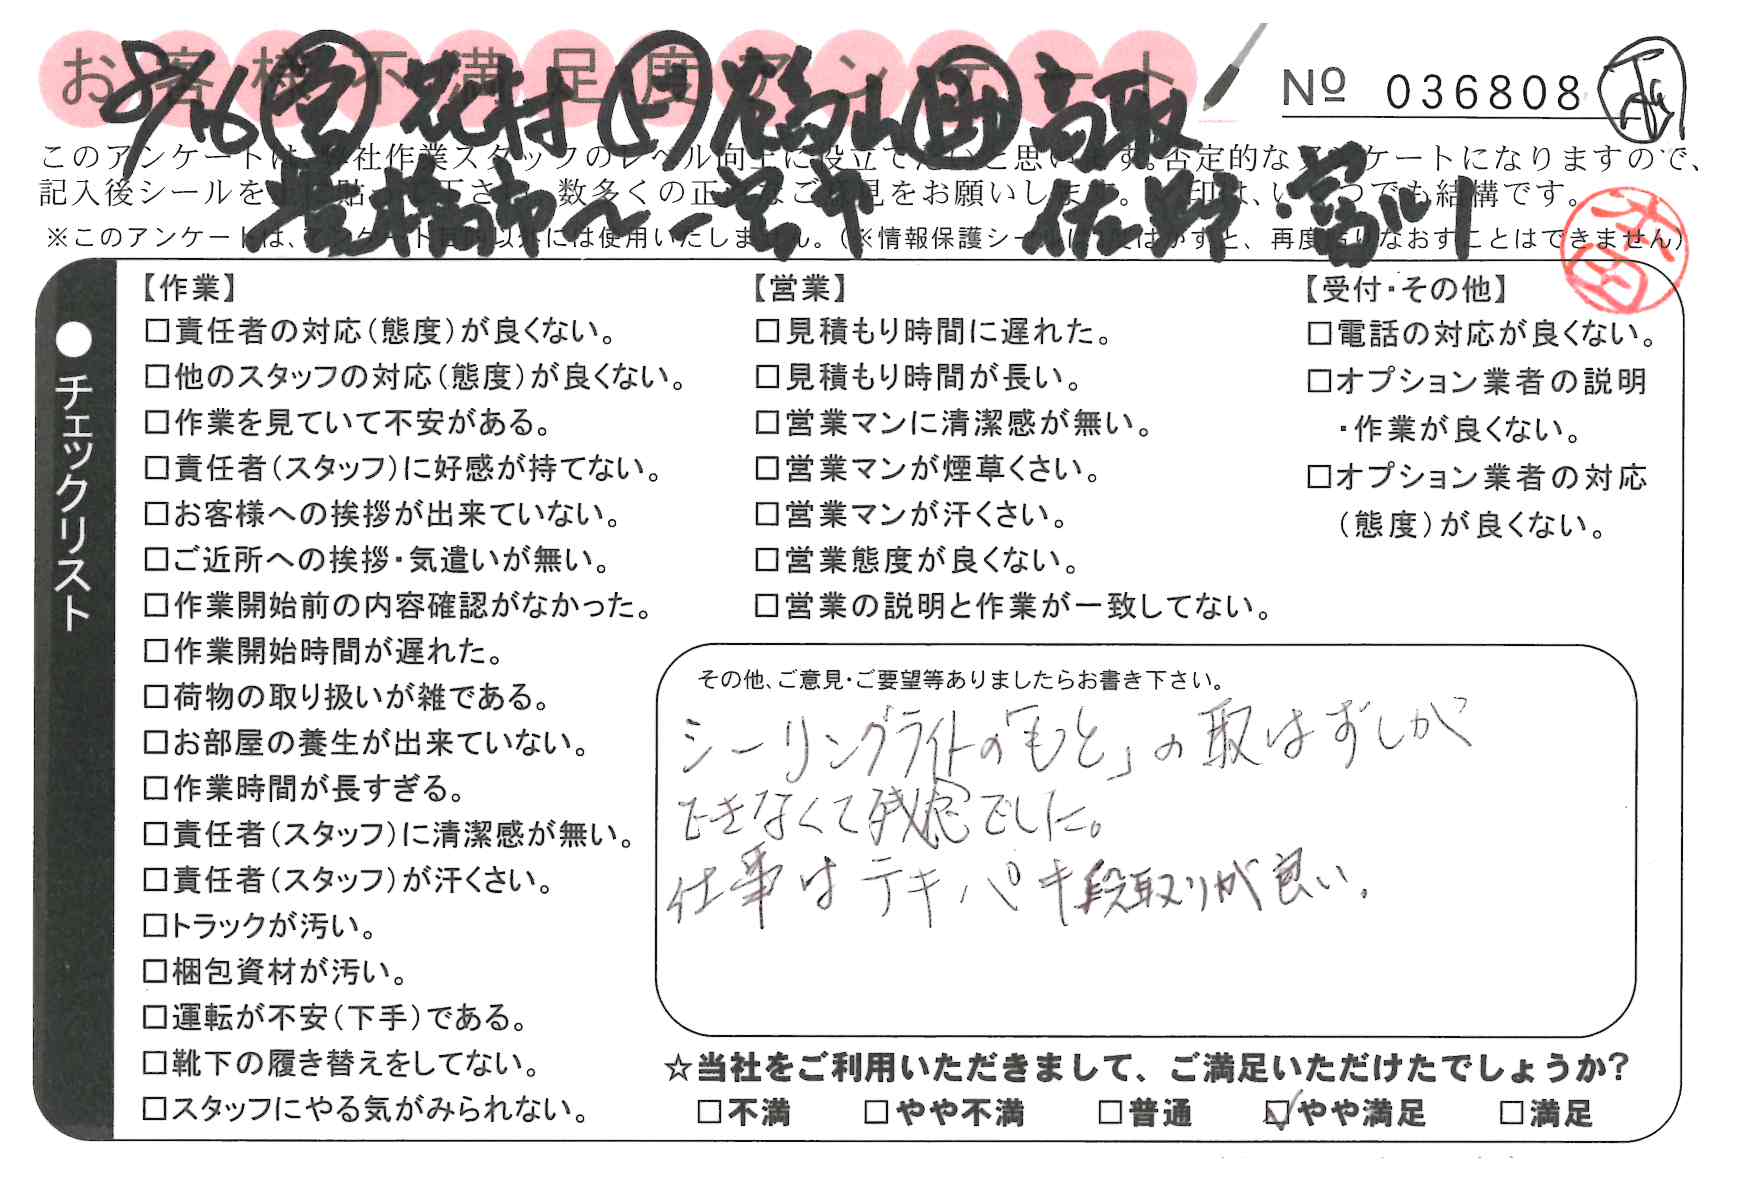 お客様不満足度アンケート
8/16 営 花村 ト 鶴山 助 高取
№ 036808
豊橋市〜一宮市 佐野・富川
このアンケートは、弊社作業スタッフのレベル向上に役立てたいと思います。否定的なアンケートになりますので、
記入後シールを 貼 下さ 数多くの正 なご意見をお願いします。 印は、いくつでも結構です。
※このアンケートは、アンケート目的以外には使用いたしません。(※情報保護シールは一度はがすと、再度貼りなおすことはできません)
本田
●チェックリスト
【作業】
□責任者の対応(態度)が良くない。
□他のスタッフの対応(態度)が良くない。
□作業を見ていて不安がある。
□責任者(スタッフ)に好感が持てない。
□お客様への挨拶が出来ていない。
□ご近所への挨拶・気遣いが無い。
□作業開始前の内容確認がなかった。
□作業開始時間が遅れた。
□荷物の取り扱いが雑である。
□お部屋の養生が出来ていない。
□作業時間が長すぎる。
□責任者(スタッフ)に清潔感が無い。
□責任者(スタッフ)が汗くさい。
□トラックが汚い。
□梱包資材が汚い。
□運転が不安(下手)である。
□靴下の履き替えをしてない。
□スタッフにやる気がみられない。
【営業】
□見積もり時間に遅れた。
□見積もり時間が長い。
□営業マンに清潔感が無い。
□営業マンが煙草くさい。
□営業マンが汗くさい。
□営業態度が良くない。
□営業の説明と作業が一致してない。
【受付・その他】
□電話の対応が良くない。
□オプション業者の説明
・作業が良くない。
□オプション業者の対応
(態度)が良くない。
その他、ご意見・ご要望等ありましたらお書き下さい。
シーリングライトの「もと」の取はずしが
できなくて残念でした。
仕事はテキパキ段取りが良い。
☆当社をご利用いただきまして、ご満足いただけたでしょうか?
□不満 □やや不満 □普通 ☑やや満足 □満足